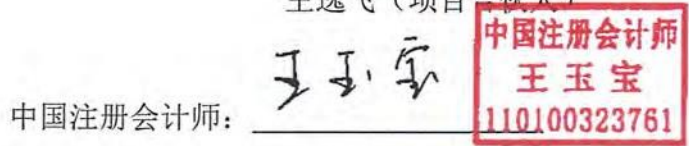 中国注册会计师
王玉宝
王玉宝
110100323761
中国注册会计师: